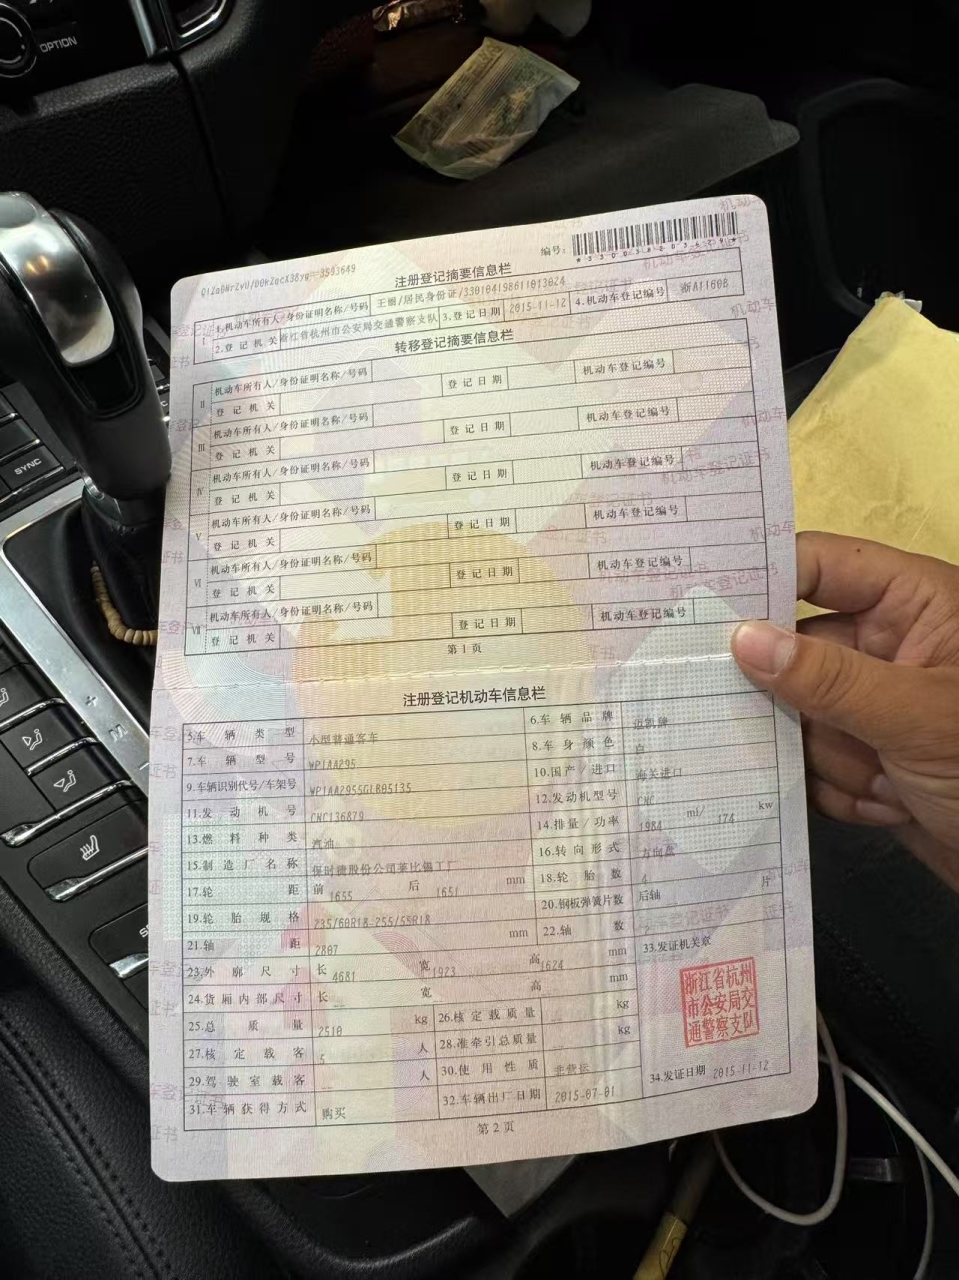 OPTION
SYNC
编号:
注册登记摘要信息栏
I
1.机动车所有人/身份证明名称/号码 王丽/居民身份证/330104198611013024
2.登记机关 浙江省杭州市公安局交通警察支队 3.登记日期 2015-11-12 4.机动车登记编号 浙A1160B
转移登记摘要信息栏
II 机动车所有人/身份证明名称/号码
登记机关 登记日期 机动车登记编号
III 机动车所有人/身份证明名称/号码
登记机关 登记日期 机动车登记编号
IV 机动车所有人/身份证明名称/号码
登记机关 登记日期 机动车登记编号
V 机动车所有人/身份证明名称/号码
登记机关 登记日期 机动车登记编号
VI 机动车所有人/身份证明名称/号码
登记机关 登记日期 机动车登记编号
VII 机动车所有人/身份证明名称/号码
登记机关 登记日期 机动车登记编号
第1页
注册登记机动车信息栏
5.车辆类型 小型普通客车 6.车辆品牌 迈凯牌
7.车辆型号 WP1AA295 8.车身颜色 白
9.车辆识别代号/车架号 WP1AA2955GLB05135 10.国产/进口 海关进口
11.发动机号 CNC136879 12.发动机型号 CNC
13.燃料种类 汽油 14.排量/功率 1984 ml/ 174 kw
15.制造厂名称 保时捷股份公司莱比锡工厂 16.转向形式 方向盘
17.轮距 前 1655 后 1651 mm 18.轮胎数 4
19.轮胎规格 235/60R18-255/55R18 20.钢板弹簧片数 后轴 片
21.轴距 2807 mm 22.轴数 2
23.外廓尺寸 长 4681 宽 1923 高 1624 mm 33.发证机关章
24.货厢内部尺寸 长 -- 宽 高 mm
浙江省杭州
市公安局交
通警察支队
25.总质量 2510 kg 26.核定载质量 kg
27.核定载客 5 人 28.准牵引总质量 kg
29.驾驶室载客 -- 人 30.使用性质 非营运
31.车辆获得方式 购买 32.车辆出厂日期 2015-07-01 34.发证日期 2015-11-12
第2页